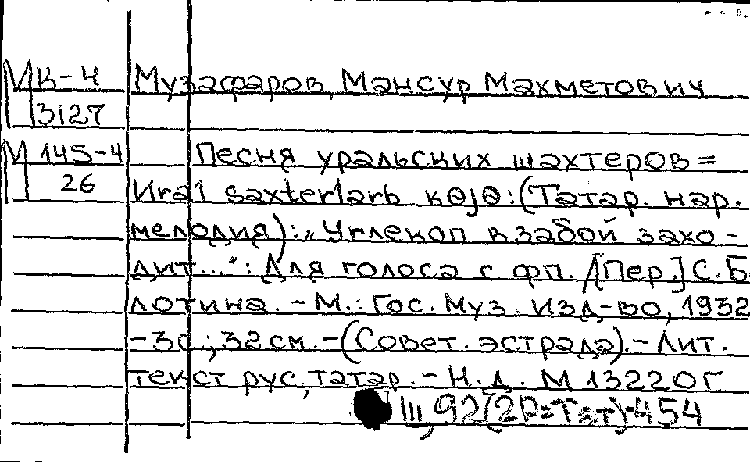 М К-4 Музафаров, Мансур Махметович
3127
М 145-4 Песня уральских шахтеров =
26 Ural şaxterlarь көjө: (Татар. нар.
мелодия): „Углекоп в забой захо-
дит...": Для голоса с фп. / [Пер.] С. Б
лотина. - М.: Гос. Муз. Изд-во, 1932
- 3с.; 32 см. - (Совет. эстрада). - Лит.
текст рус., татар. - Н.д. М 13220 Г
Ш, 92(2Р=Тат)-454